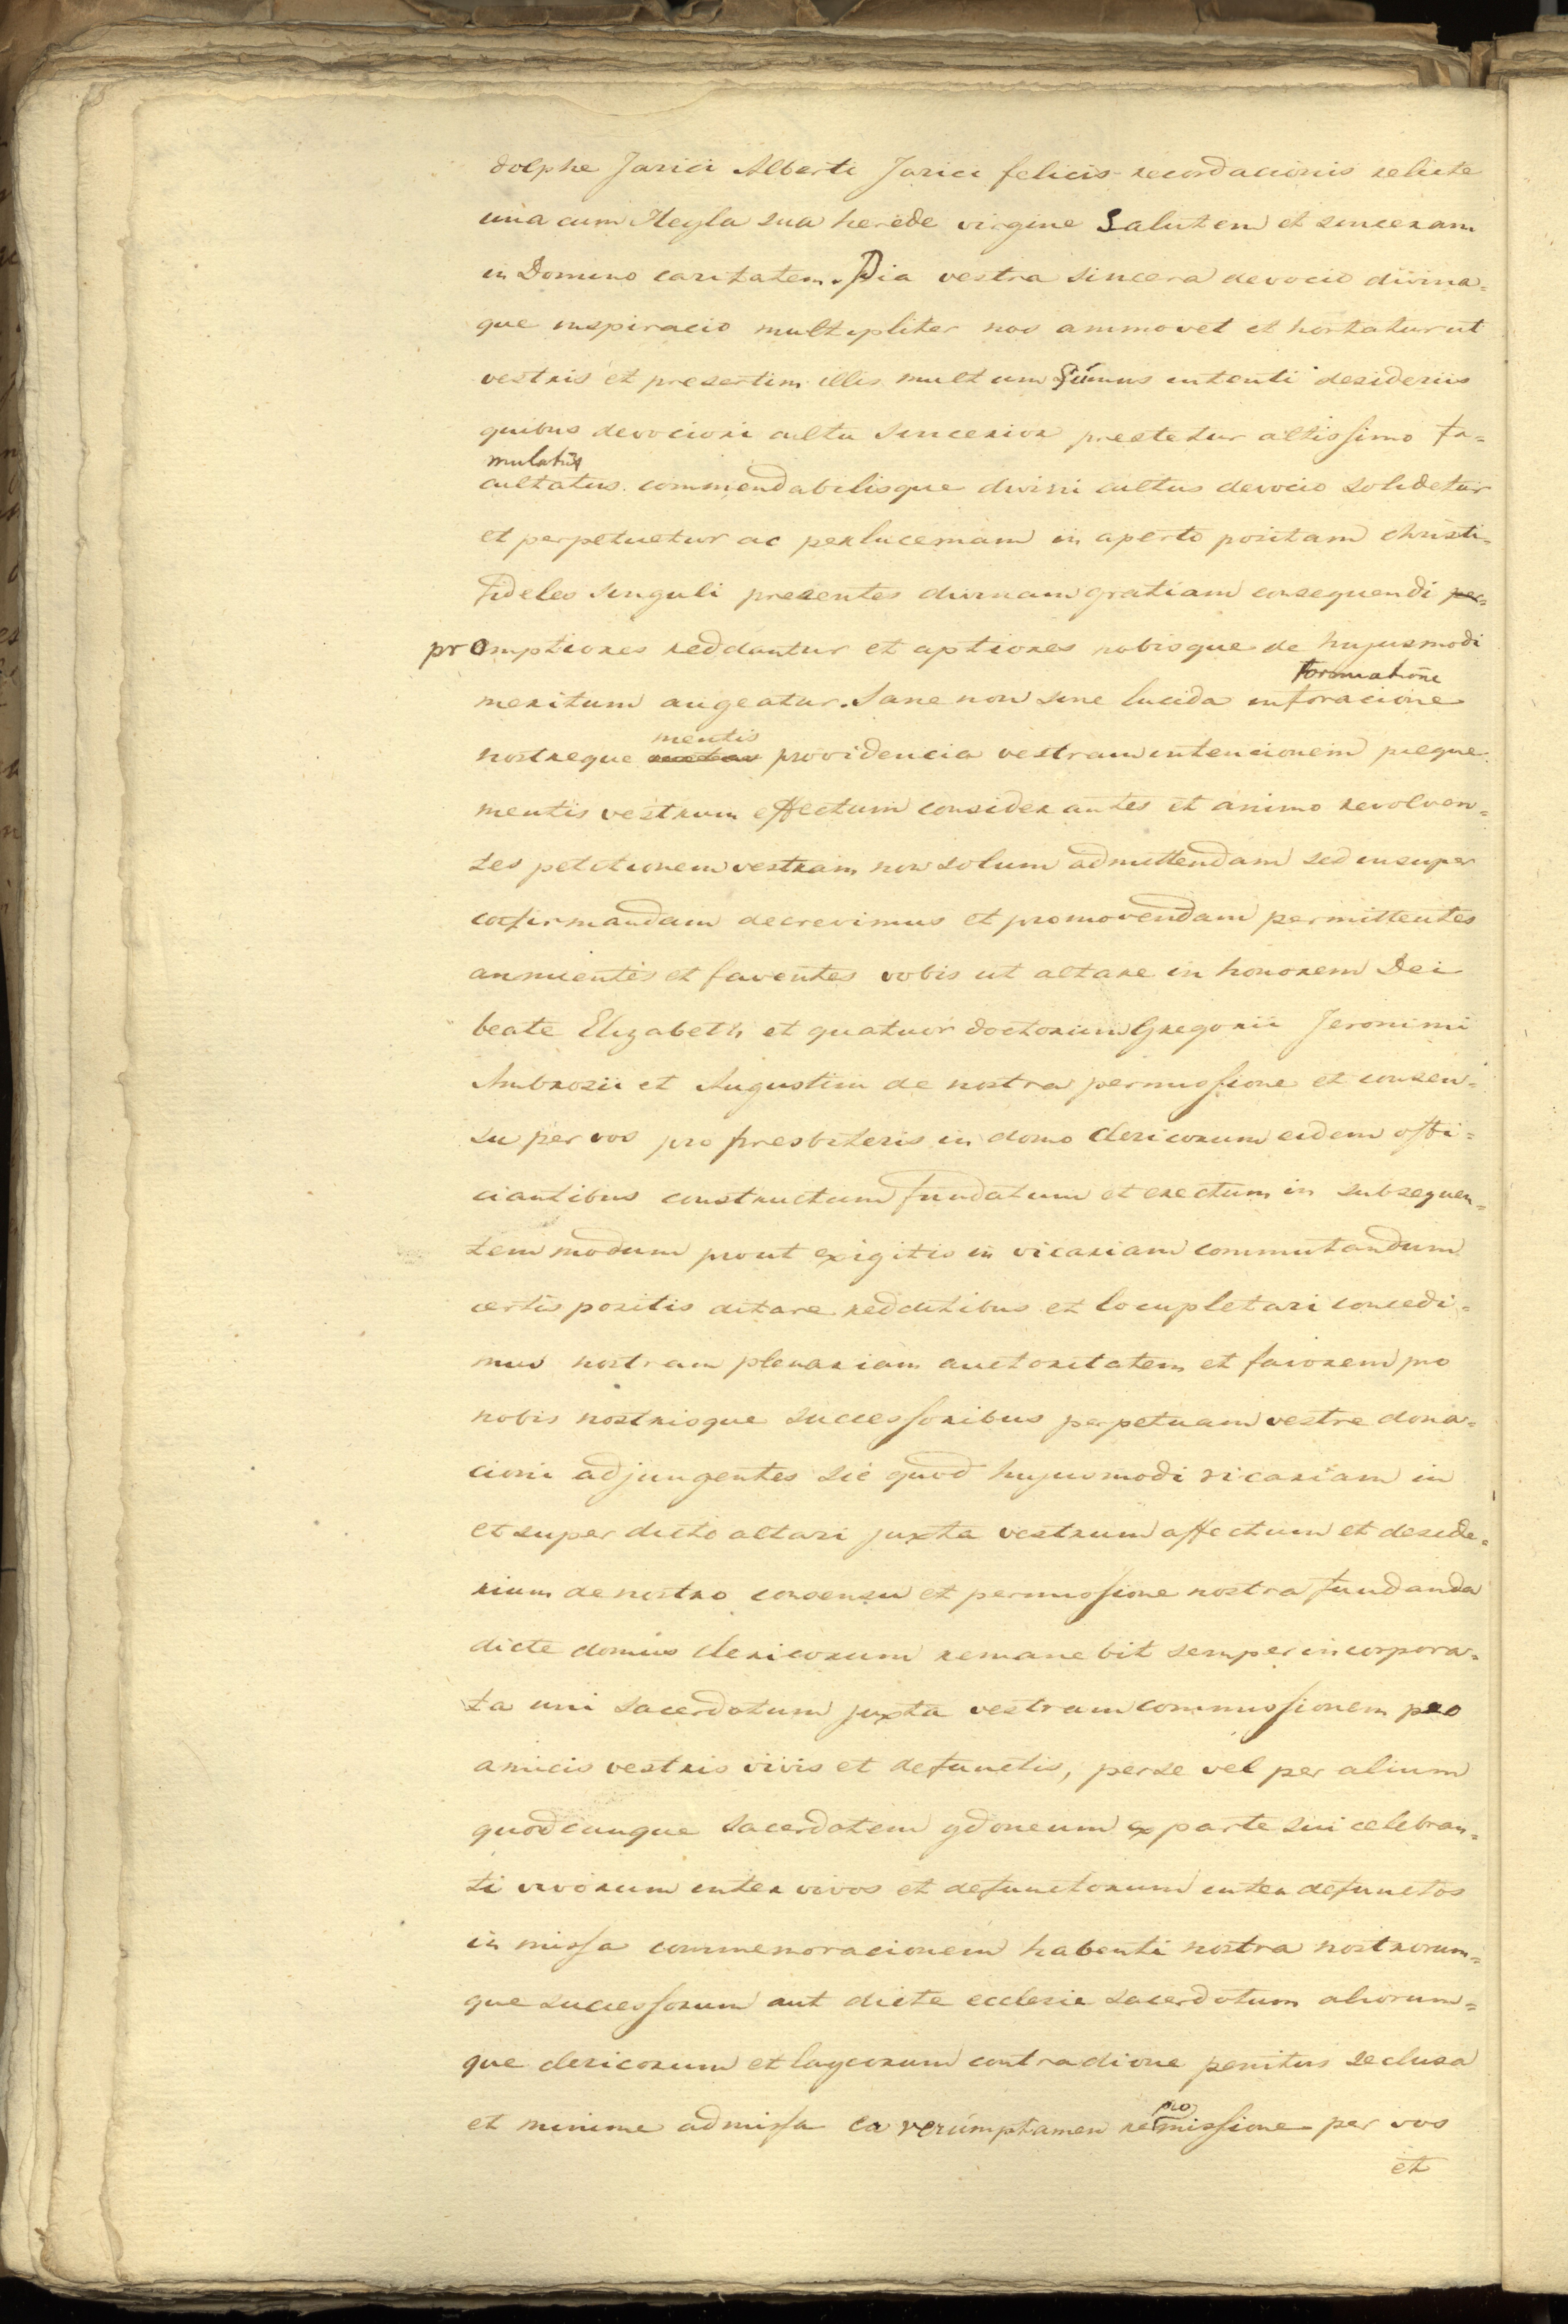 dolphe Jarici Alberti Jarici felicis recordacionis relicte
una cum Heyla sua herede virgine Salutem et sinceram
in Domino caritatem. Pia vestra sincera devocio divina=
que inspiracio multipliter nos ammovet et hortatur ut
vestris et presertim illis multum simus intenti desideriis
quibus devocioni cultu sincerior prestetur altissimo fa=
mulatus
cultatus commendabilisque divini cultus devocio solidetur
et perpetuetur ac per lucernam in aperto positam christi=
fideles singuli presentes divinam gratiam consequendi per=
promptiores reddantur et aptiores nobisque de hujusmodi
formatione
meritum augeatur. Sane non sine lucida inforacione
mentis
nostreque providencia vestram intencionem pieque
mentis vestrum effectum considerantes et animo revolven=
tes petitionem vestram non solum admittendam sed insuper
confirmandam decrevimus et promovendam permittentes
annuentes et faventes vobis ut altare in honorem Dei
beate Elizabeth et quatuor doctorum Gregorii Jeronimi
Ambrosii et Augustini de nostra permissione et consen=
su per vos pro presbiteris in domo clericorum eidem offi=
ciantibus constructum fundatum et erectum in subsequen=
tem modum prout exigitis in vicariam commutandum
certis positis ditare redditibus et locupletari concedi=
mus nostram plenariam auctoritatem et favorem pro
nobis nostrisque successoribus perpetuam vestre dona=
cioni adjungentes sic quod hujusmodi vicariam in
et super dicto altari juxta vestrum affectum et deside=
rium de nostro consensu et permissione nostra fundanda
dicte domus clericorum remanebit semper incorpora=
ta uni sacerdotum juxta vestram commissionem pro
amicis vestris vivis et defunctis, per se vel per alium
quodcunque sacerdotem ydoneum ex parte sui celebran=
ti vivorum inter vivos et defunctorum inter defunctos
in missa commemoracionem habenti nostra nostrorum=
que successorum aut dicte ecclesie sacerdotum aliorum=
que clericorum et laycorum contradione penitus seclusa
et minime admissa ea verumptamen remissione per vos
pro
et